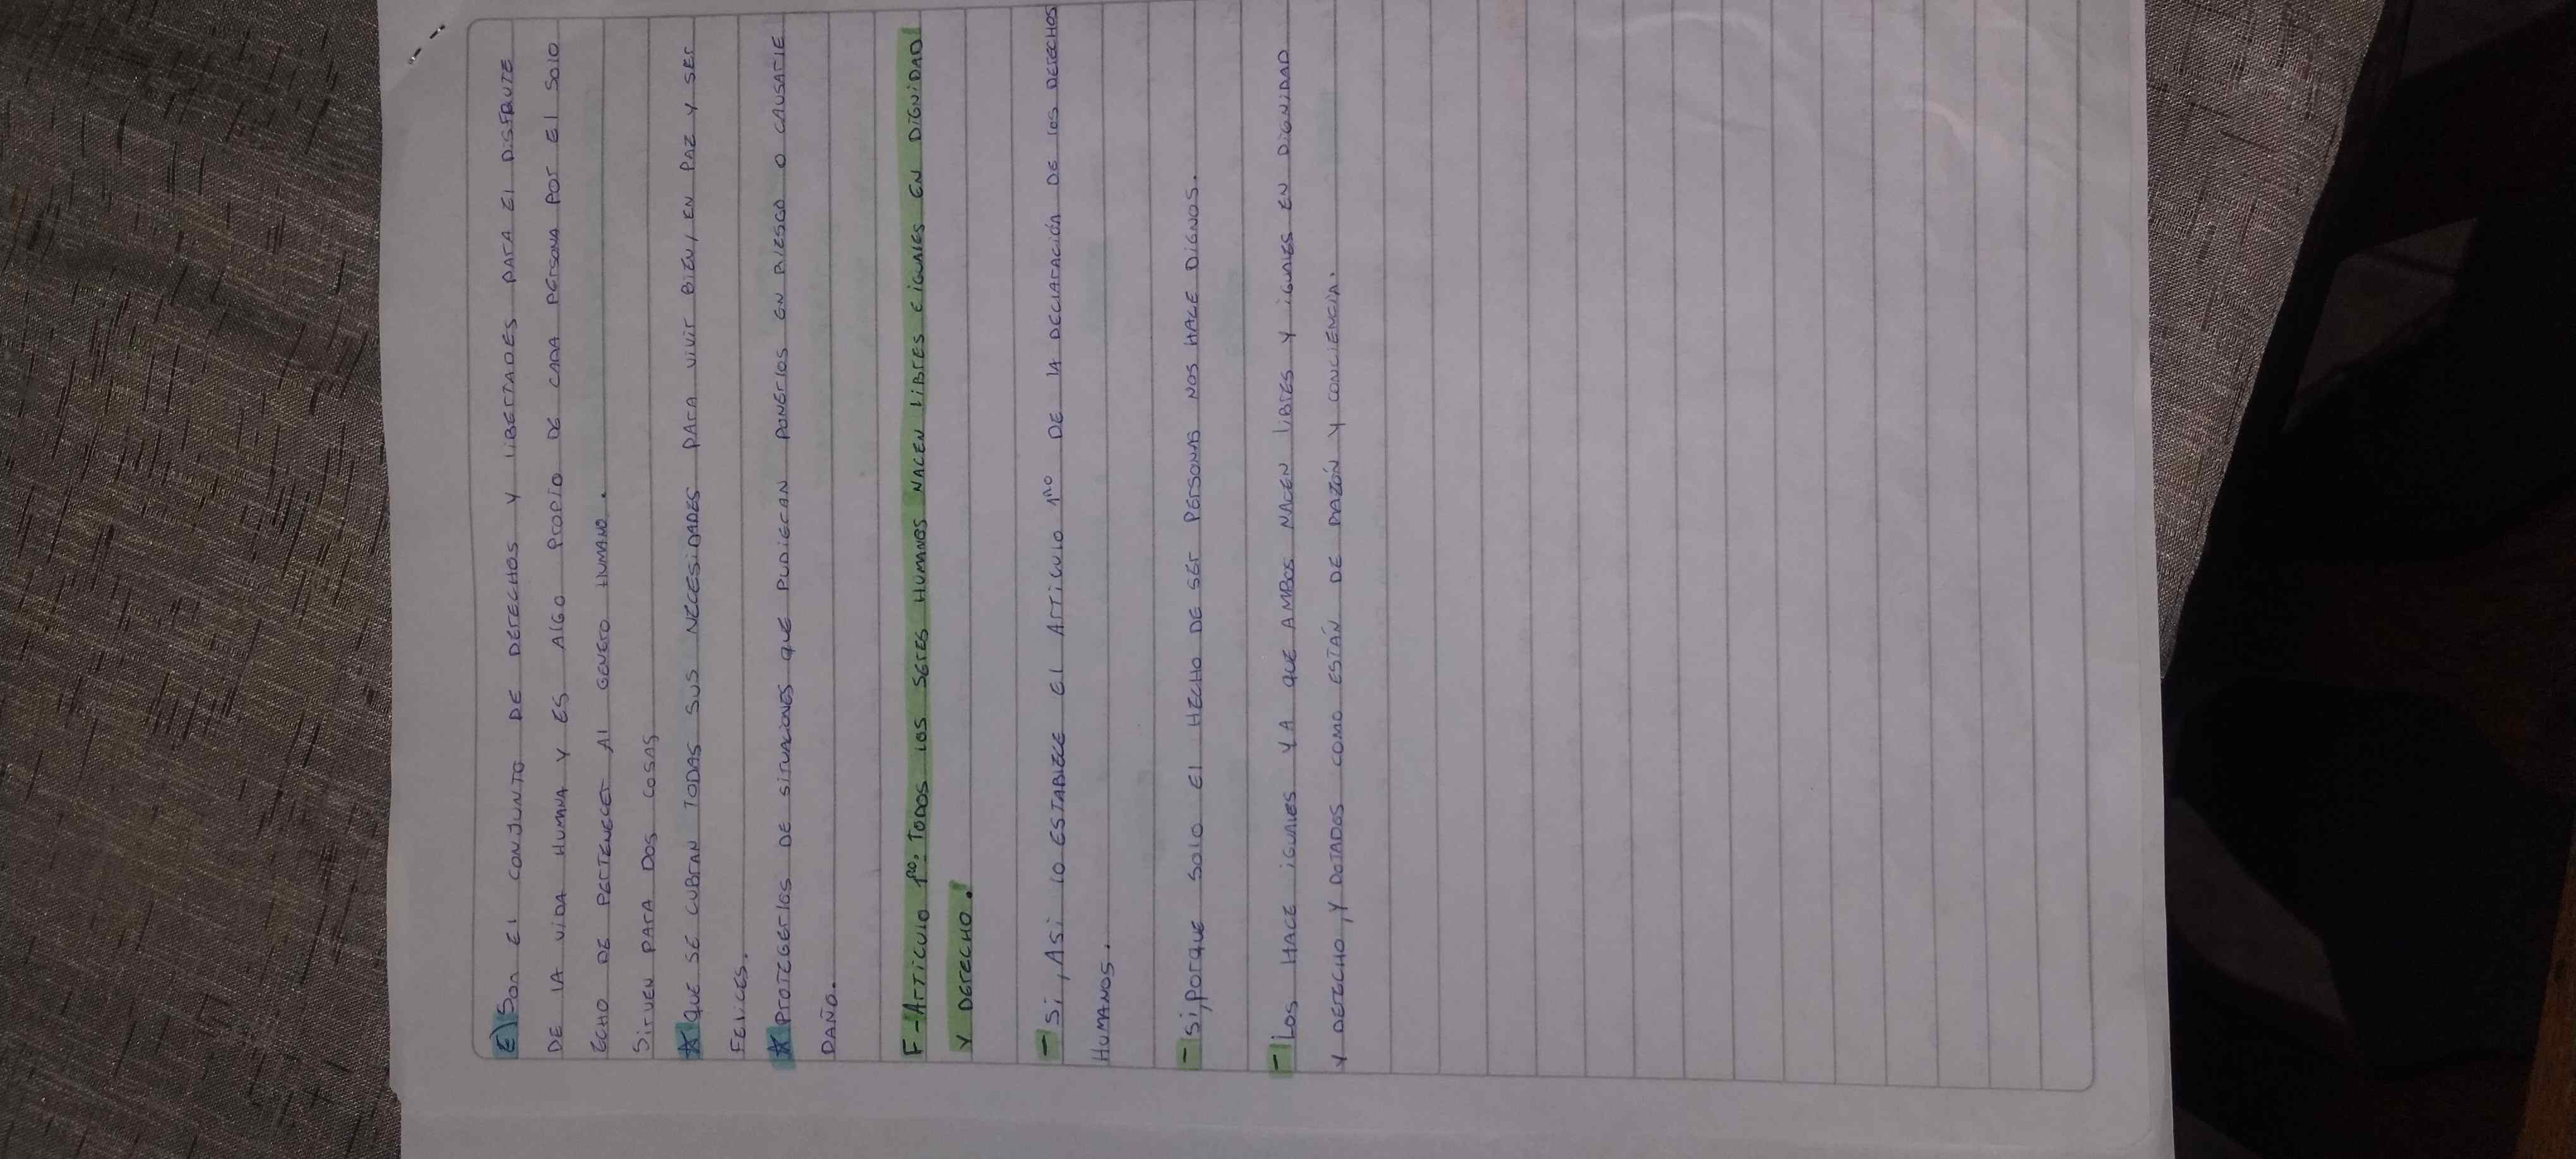 E) Son El conjunto de derechos y libertades para El disfrute
de la vida humana y es algo propio de cada persona por El solo
Echo de pertenecer al genero humano.
Sirven para dos cosas
☆ que se cubran todas sus necesidades para vivir bien, en paz y ser
felices.
☆ protegerlos de situaciones que pudiecan ponerlos en riesgo o causarle
daño.
F-Articulo 1ro: Todos los seres humanos nacen libres e iguales en dignidad
y derecho.
- Si, Asi lo establece el Articulo 1ro de la declaración de los derechos
Humanos.
- Si, porque solo el hecho de ser personas nos hace dignos.
- Los hace iguales ya que ambos nacen libres y iguales en dignidad
y derecho, y dotados como están de razón y conciencia.